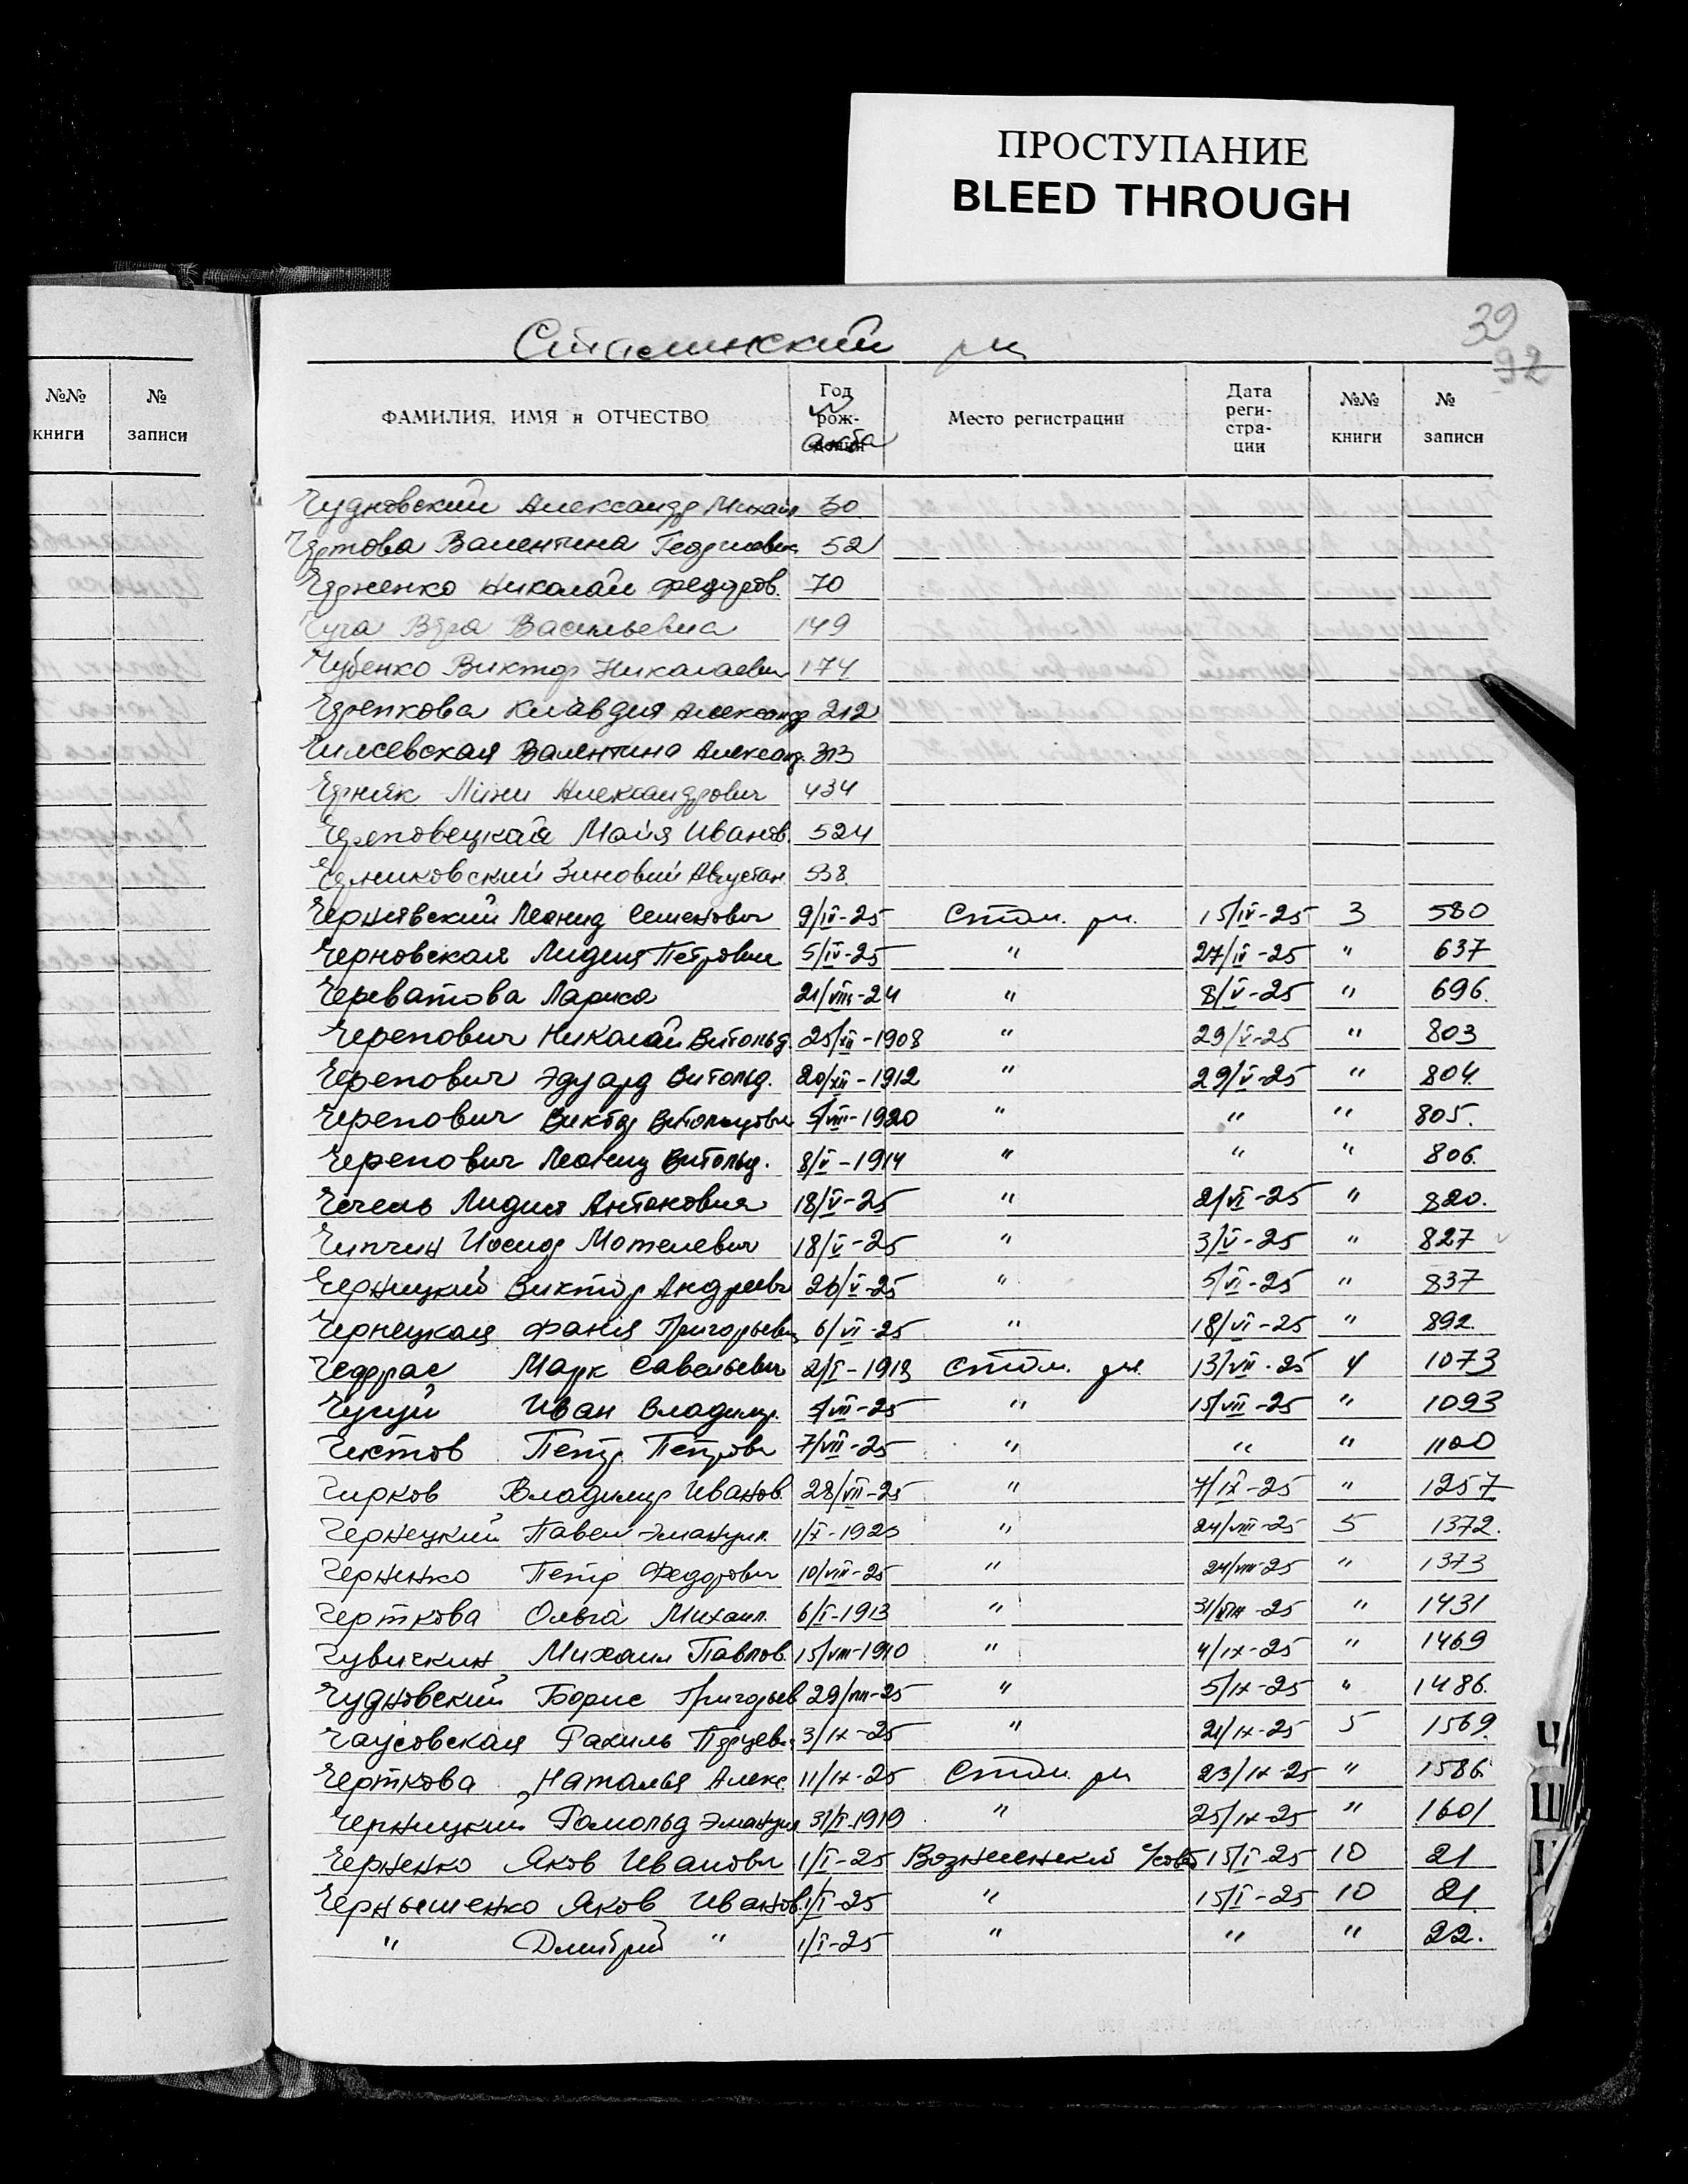 ПРОСТУПАНИЕ
BLEED THROUGH
39
92
Сталинский рн
№№ книги № записи
ФАМИЛИЯ, ИМЯ и ОТЧЕСТВО Год рож- акта Место регистрации Дата реги-стра-ции №№ книги № записи
Чудновский Александр Михайл 30
Чертова Валентина Георгиевна 52
Черненко Николай Федоров. 70
Чуга Вера Васильевна 149
Чубенко Виктор Николаевич 174
Черепкова Клавдия Александр 212
Чижевская Валентина Александ. 313
Черняк Александрович 434
Череповецкая Майя Иванов. 524
Черниковский Зиновий Августан. 538.
Чернявский Леонид Семенович 9/IV-25 Стал. рн. 15/IV-25 3 580
Черновская Лидия Петровна 5/IV-25 " 27/IV-25 " 637
Череватова Лариса 21/VIII-24 " 8/V-25 " 696.
Черепович Николай Витольд. 25/XII-1908 " 29/V-25 " 803
Черепович Эдуард Витольд. 20/XII-1912 " 29/V-25 " 804.
Черепович Виктор Витольдович 5/VIII-1920 " " " 805.
Черепович Леонид Витольд. 8/V-1914 " " " 806.
Чечель Лидия Антоновна 18/V-25 " 2/VI-25 " 820.
Чипчин Иосиф Мотелевич 18/V-25 " 3/V-25 " 827
Черницкий Виктор Андреевич 26/V-25 " 5/VI-25 " 837
Чернецкая Фаня Григорьевна 6/VI-25 " 18/VI-25 " 892.
Марк Савельевич 2/I-1913 Стал. рн. 13/VII-25 4 1073
Чугуй Иван Владимир. 5/VII-25 " 15/VII-25 " 1093
Чистов Петр Петрович 7/VII-25 " " " 1100
Чирков Владимир Иванов. 28/VII-25 " 7/IX-25 " 1257
Чернецкий Павел Эмануил. 1/X-1923 " 24/VIII-25 5 1372.
Черненко Петр Федорович 10/VIII-25 " 24/VIII-25 " 1373
Черткова Ольга Михаил. 6/I-1913 " 31/VIII-25 " 1431
Чувичкин Михаил Павлов. 15/VIII-1910 " 4/IX-25 " 1469
Чудновский Борис Григорьев 29/VIII-25 " 5/IX-25 " 1486.
Чаусовская Рахиль 3/IX-25 " 21/IX-25 5 1569.
Черткова Наталья Алекс. 11/IX-25 Стал. рн 23/IX-25 " 1586.
Черницкий Ромольд Эмануил 31/I-1919 " 25/IX-25 " 1601
Черненко Яков Иванович 1/I-25 Вознесенский с/совет 15/I-25 10 21
Чернышенко Яков Иванов. 1/I-25 " 15/I-25 10 21.
" Дмитрий " 1/I-25 " " " 22.
Ц
Ш